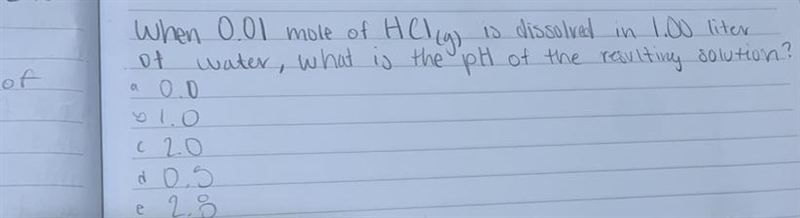 When 0.01 mole of HCl(g) is dissolved in 1.00 liter
of water, what is the pH of the resulting solution?
of
a 0.0
b 1.0
c 2.0
d 0.5
e 2.8